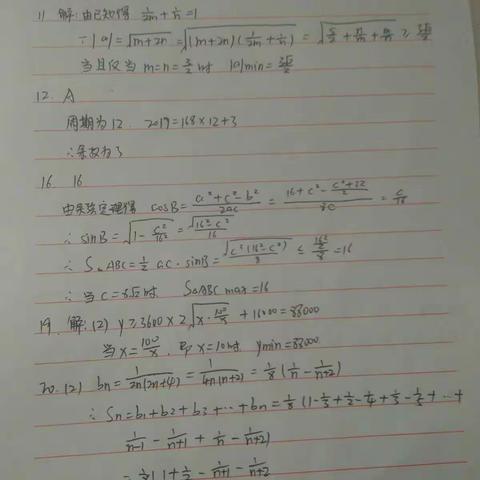 11 解:由已知得 1/2m + 1/n = 1
∵|a|=√(m+2n)=√((m+2n)(1/2m+1/n))=√(5/2+n/m+m/n)≥3√2/2
当且仅当 m=n=3/2时 |a|min=3√2/2
12. A
周期为12. 2019=168×12+3
∴余数为3
16. 16
由余弦定理得 cosB=(a²+c²-b²)/2ac=(16+c²-(c²+32)/2)/8c=c/16
∴ sinB=√(1-c²/16²)=√(16²-c²)/16
∴ S△ABC=1/2 ac·sinB=√(c²(16²-c²))/8≤(16²/2)/8=16
∴ 当 c=8√2时 S△ABC max=16
19. 解:(2) y≥3600×2√(x·100/x)+16000=88000
当x=100/x, 即 x=10时 ymin=88000
20.(2) bn=1/2n(2n+4)=1/4n(n+2)=1/8(1/n-1/n+2)
∴ Sn=b1+b2+b3+…+bn=1/8(1-1/3+1/2-1/4+1/3-1/5+…+
1/n-1 - 1/n+1 + 1/n - 1/n+2)
=1/8(1+1/2-1/n+1-1/n+2